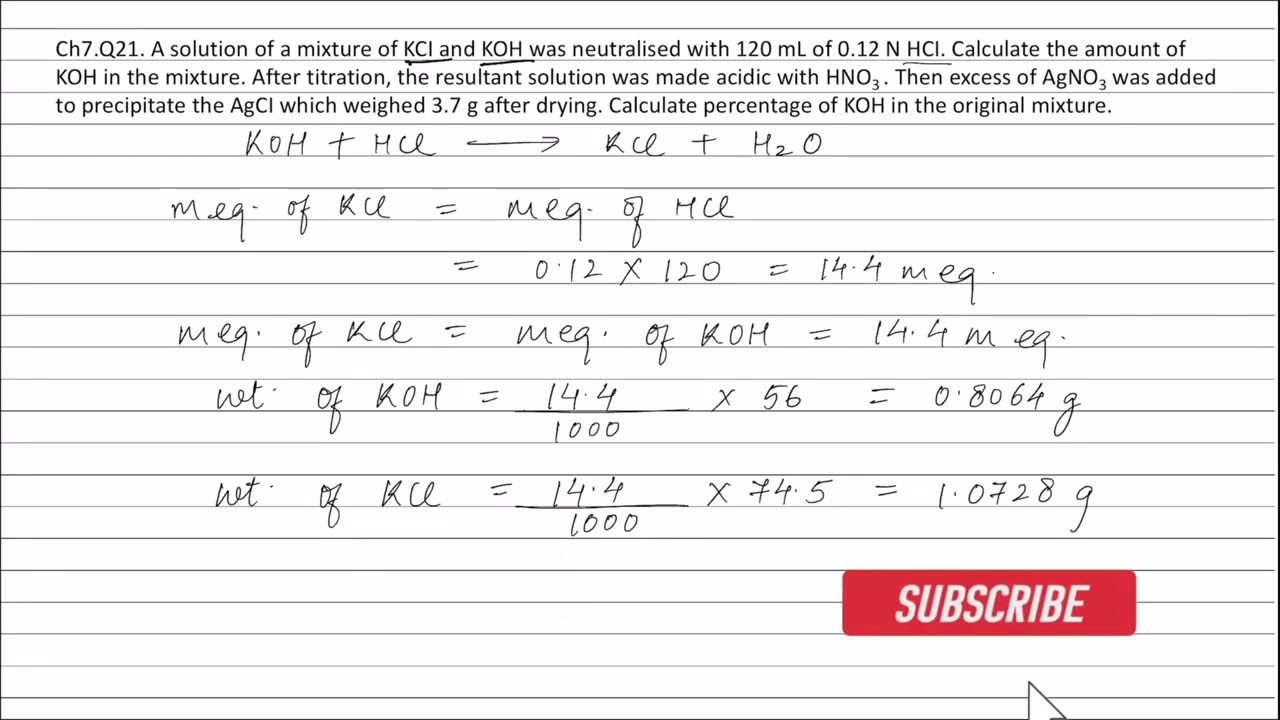 Ch7.Q21. A solution of a mixture of KCl and KOH was neutralised with 120 mL of 0.12 N HCl. Calculate the amount of
KOH in the mixture. After titration, the resultant solution was made acidic with HNO₃. Then excess of AgNO₃ was added
to precipitate the AgCl which weighed 3.7 g after drying. Calculate percentage of KOH in the original mixture.
KOH + HCl ⟶ KCl + H₂O
meq. of KCl = meq. of HCl
= 0.12 × 120 = 14.4 meq.
meq. of KCl = meq. of KOH = 14.4 meq.
wt. of KOH = 14.4/1000 × 56 = 0.8064 g
wt. of KCl = 14.4/1000 × 74.5 = 1.0728 g
SUBSCRIBE